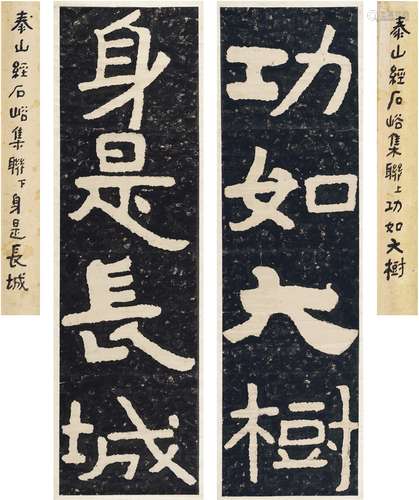 泰山經石峪集聯上功如大樹
功如大樹
身是長城
泰山經石峪集聯下身是長城